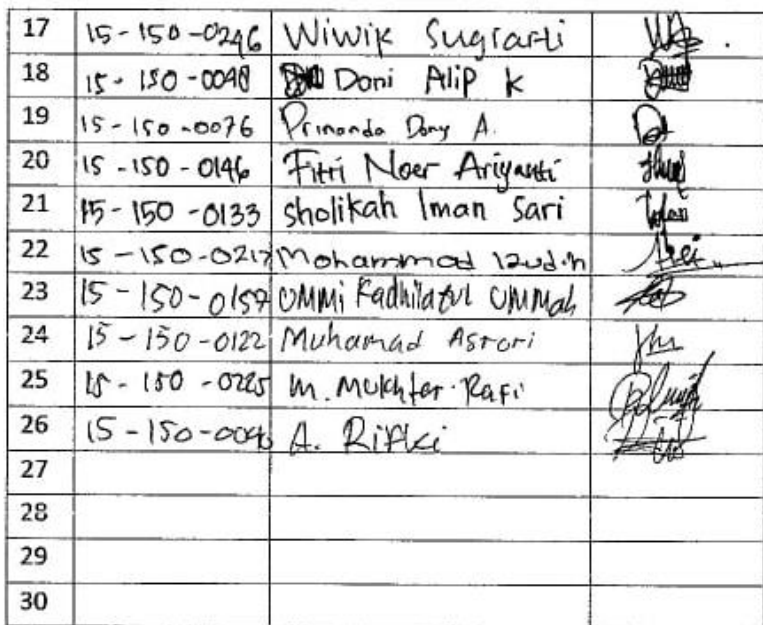 17 15-150-0246 Wiwik Sugiarti
18 15-150-0048 Doni Alip K
19 15-150-0076 Primanda Dony A.
20 15-150-0146 Fitri Noer Ariyanti
21 15-150-0133 Sholikah Iman Sari
22 15-150-0217 Mohammad Izudin
23 15-150-0159 UMMi Fadhilatul UMMah
24 15-150-0122 Muhamad Asrori
25 15-150-0225 M. Mukhtar Rafi
26 15-150-0096 A. Rifki
27
28
29
30